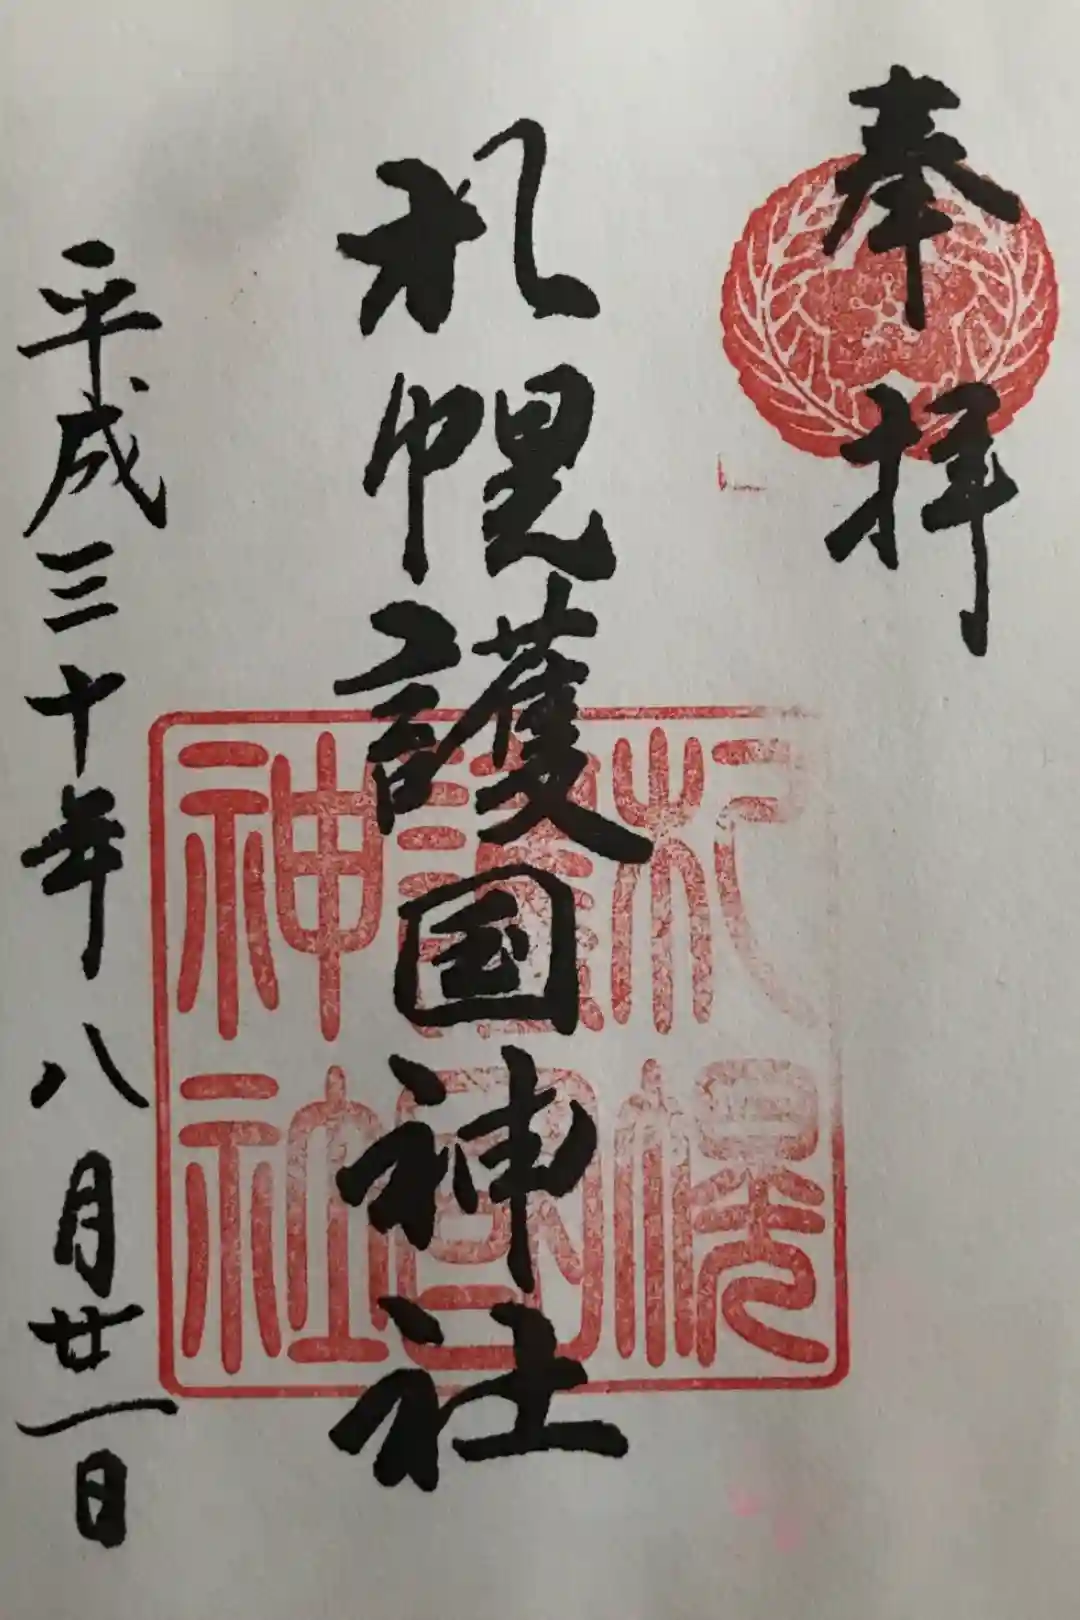 奉拝
札幌護国神社
札幌
護国
神社
平成三十年八月廿一日